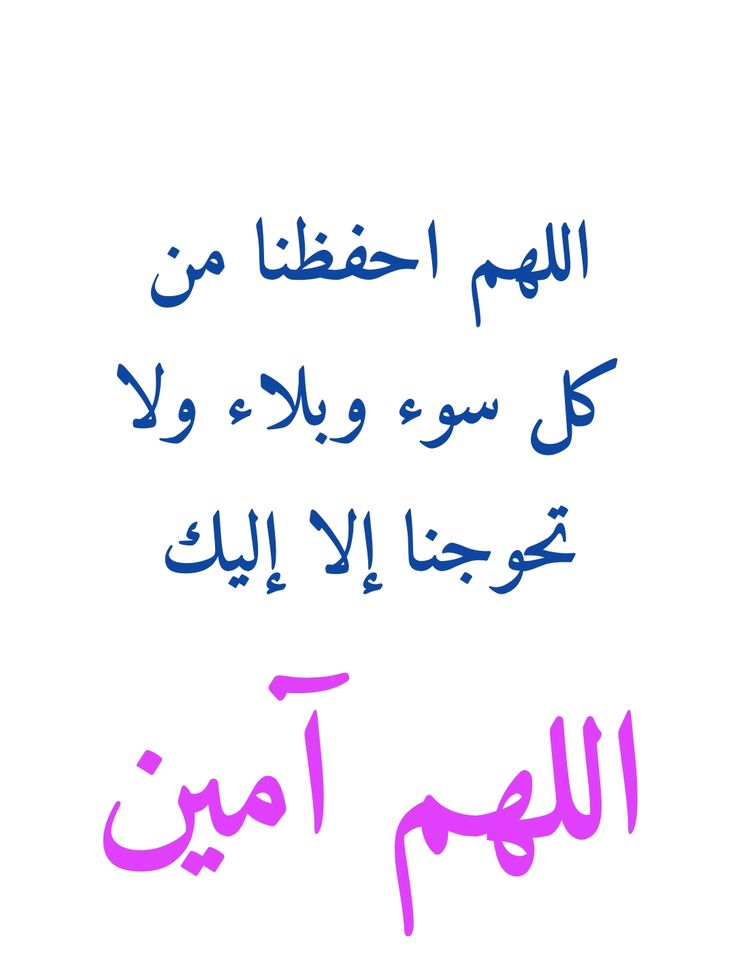 اللهم احفظنا من
كل سوء وبلاء ولا
تحوجنا إلا إليك
اللهم آمين